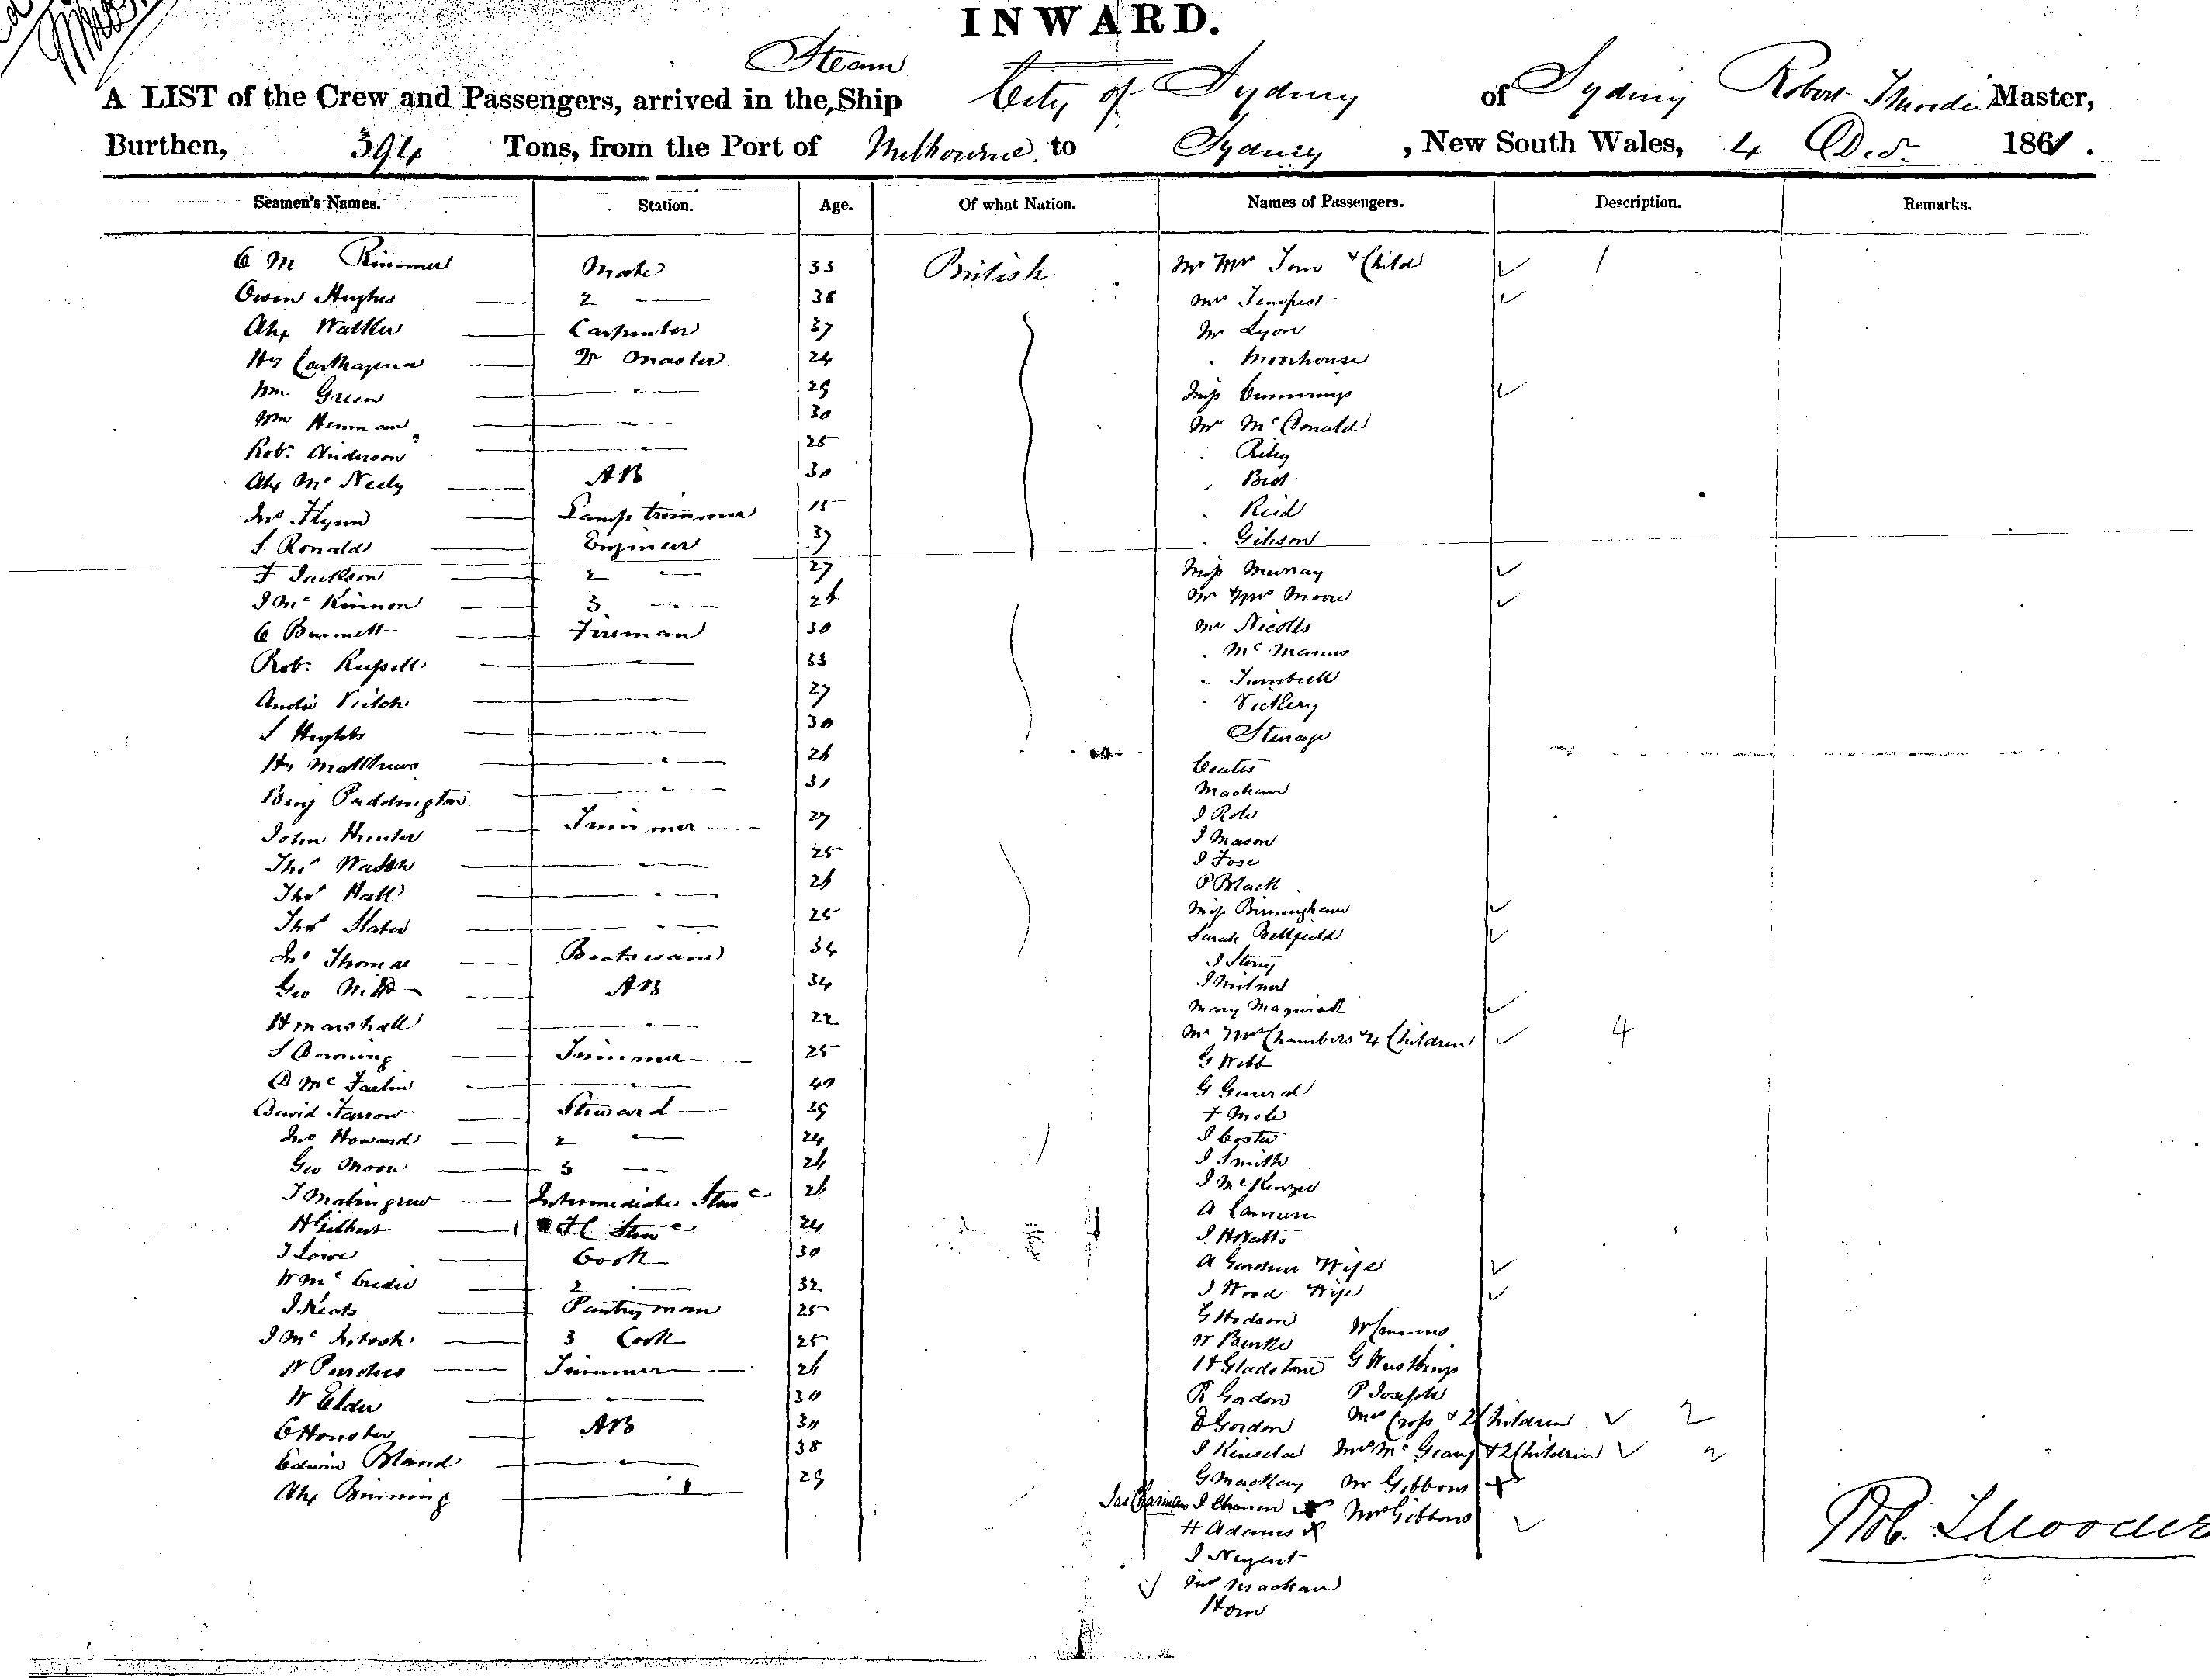 INWARD.
Steam
A LIST of the Crew and Passengers, arrived in the Ship City of Sydney of Sydney Robert Master,
Burthen, 394 Tons, from the Port of Melbourne to Sydney, New South Wales, 4 Dec. 1861.
Seamen's Names. Station. Age. Of what Nation. Names of Passengers. Description. Remarks.
C M Rimmer Mate 33 British Mr Mrs & Child 1
Owen Hughes 2 38 Mrs Tempest
Alex Walker Carpenter 37 Mr Lyon
Hy Master 24 Moorhouse
Wm Green 29 Miss Cummings
Wm 30 Mr McDonald
Robt Anderson 25 Riley
Alex McNeely AB 30
Jno Flynn Lamp trimmer 15 Reid
S Ronald Engineer 37 Gibson
F Jackson 2 27 Miss Murray
J McKinnon 3 26 Mr Mrs Moore
C Burnett Fireman 30 Mr Nicolls
Robt Russell 33 McManus
Andw Veitch 27 Turnbull
S 30 Vickery
Steerage
Hy Matthews 26 Coates
Benj Paddington 31 Machan
John Hunter Trimmer 27 J
J Mason
Thos 25 J
Thos Hall 26 P Black
Thos Slater 25 Miss Birmingham
Sarah Bellfield
Jno Thomas Boatswain 34 J
Geo AB 34 J Milner
H Marshall 22 Mary
S Downing Trimmer 25 Mr Mrs Chambers & 4 Children 4
G Webb
D McFarlin 40 G General
David Farrow Steward 39 F Mole
Jno Howard 2 24 J
Geo Moore 3 26 J Smith
J Intermediate Stewd 26 J McKenzie
H Gilbert Stewd 24 A Cameron
J Lowe Cook 30 J H Watts
W McCredie 2 32 A Gardner Wife
J Keats Pantryman 25 J Wood Wife
J McIntosh 3 Cook 25 G Hodson
W Trimmer 26 W Burke
W Elder 30 H Gladstone G
AB 30 R Gordon P Joseph
Edwin Bland 38 D Gordon Mrs Cross & 2 Children 2
Alex Binning 29 J Kinsela Mrs & 2 Children 2
G Mackay Mr Gibbons
Jas Mrs Gibbons
H Adams
J Nugent
Mrs Machan
Horn
Rob.